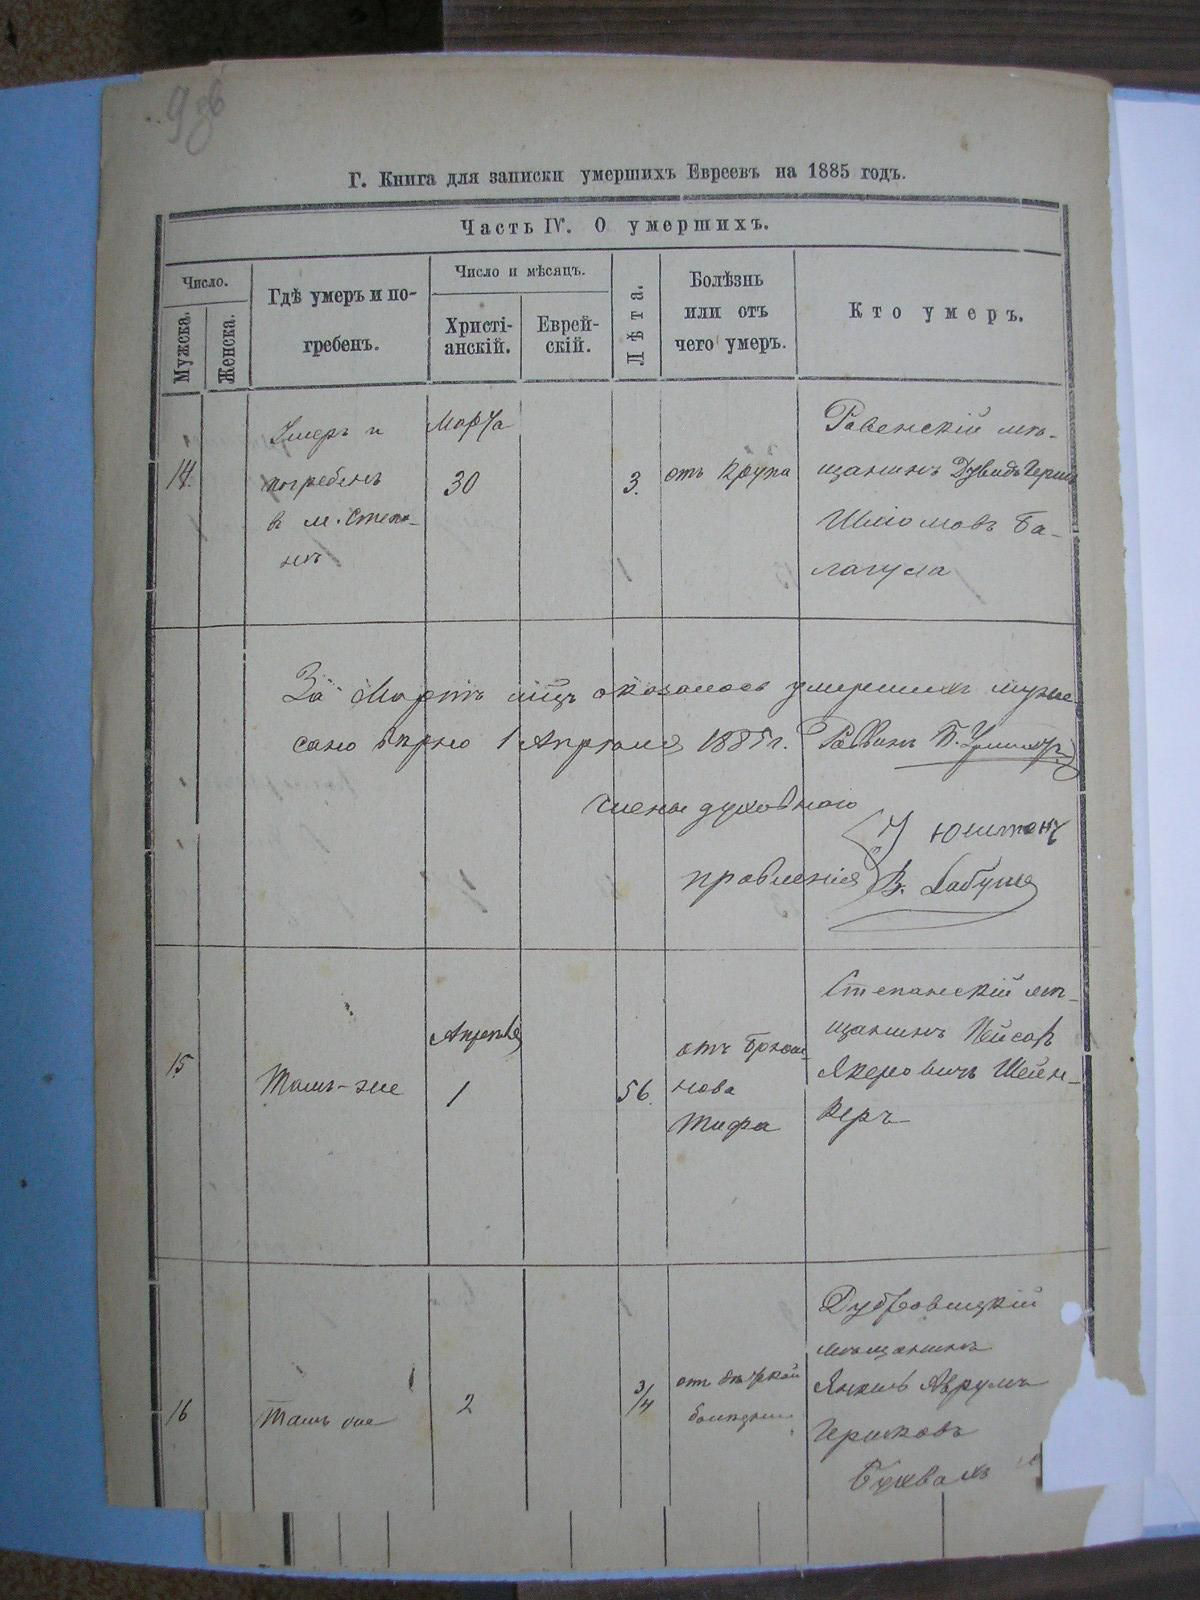 Г. Книга для записки умершихъ Евреевъ на 1885 годъ.
Часть IV. О умершихъ.
Число.
Мужеска.
Женска.
Гдѣ умеръ и по-
гребенъ.
Число и мѣсяцъ.
Христі-
анскій.
Еврей-
скій.
Лѣта.
Болѣзнь
или отъ
чего умеръ.
Кто умеръ.
14.
Умеръ и
погребенъ
в м. Степа-
нѣ
Марта
30
3.
отъ крупа
Ровенскій мѣ-
щанинъ Дувидъ Герш
Шліомовъ Ба-
лагула
За Мартъ мцъ оказалось умершихъ
вѣрно 1 Апрѣля 1885 г. Раввинъ Б.
члены духовнаго
правленія
В.
15
Тамъ-же
Апрѣля
1
56.
отъ брюш-
нова
тифа
Степанскій мѣ-
щанинъ Пейсах
Шейн-
керъ
16
Тамъ же
2
3/4
отъ дѣтской
болѣзни
Дубровицкій
мѣщанинъ
Янкель Аврумъ
Гершковъ